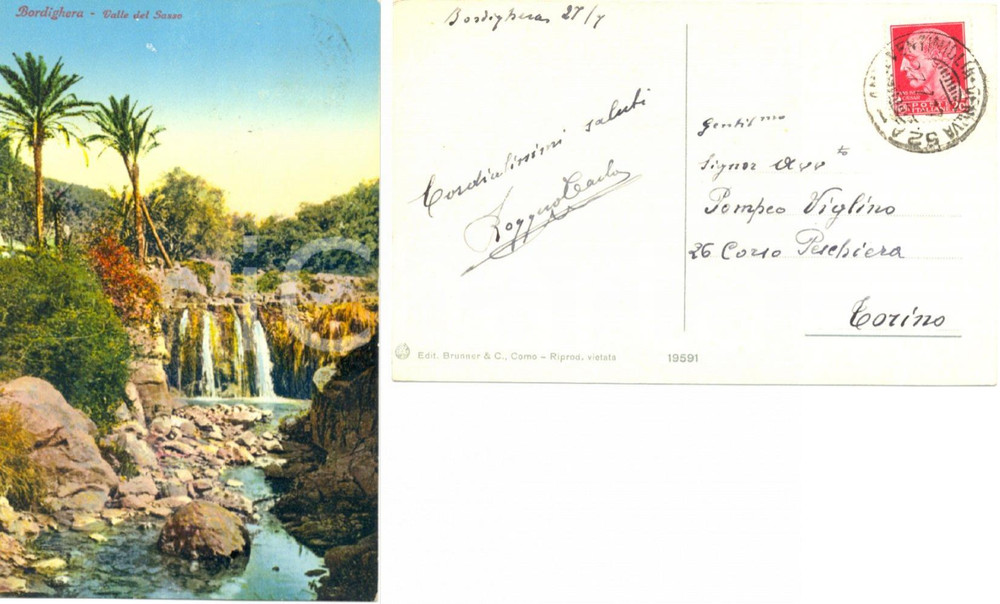 Bordighera - Valle del Sasso
Bordighera 27/7
Cordialissimi saluti
Roggero Carlo
Gentilmo
Signor Avvto
Pompeo Viglino
26 Corso Peschiera
Torino
POSTE
ITALIANE
VENTIMIGLIA-GENOVA
52 A
Edit. Brunner & C., Como – Riprod. vietata
19591